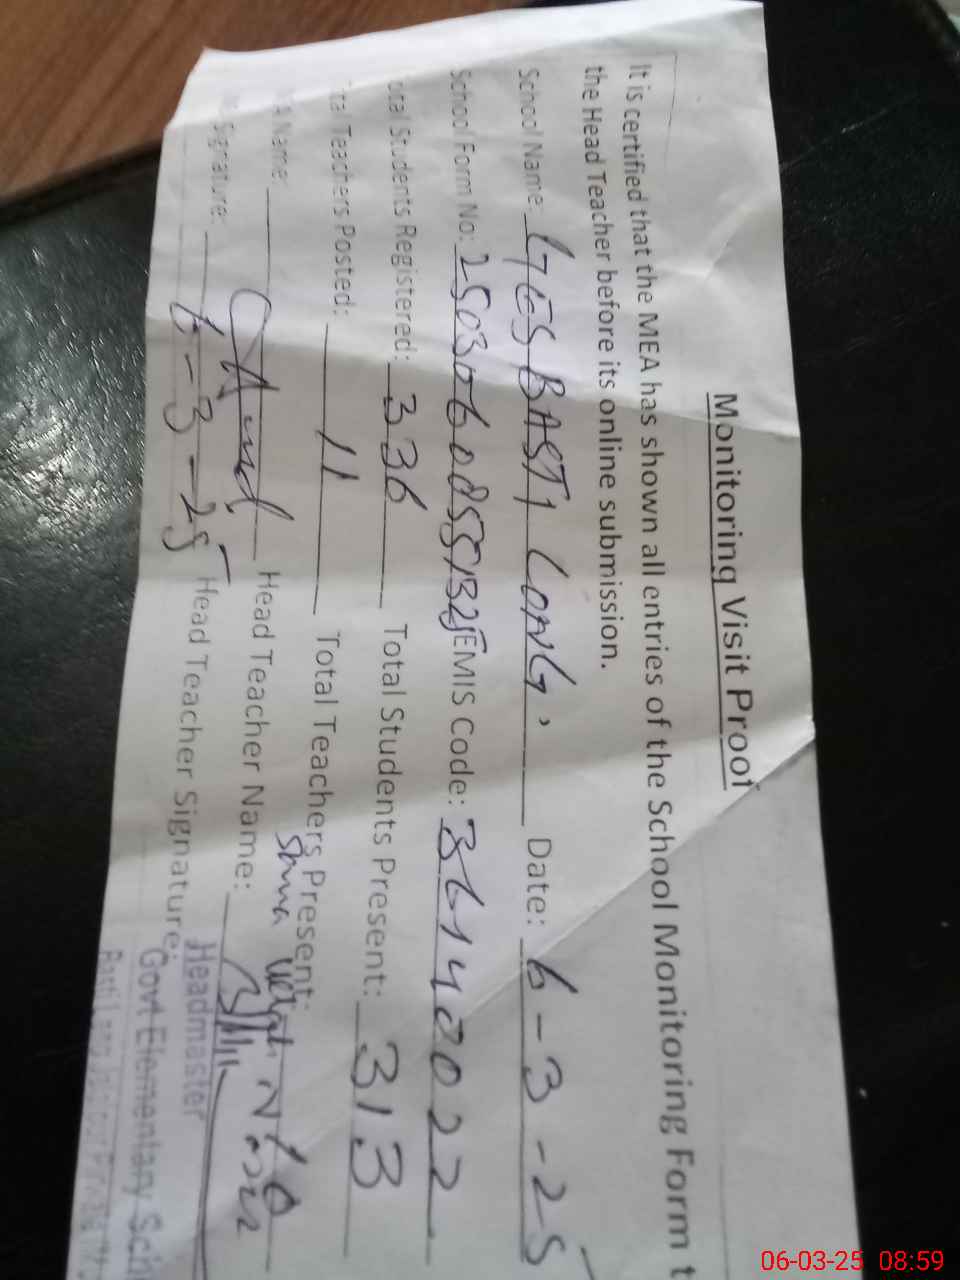 Monitoring Visit Proof
It is certified that the MEA has shown all entries of the School Monitoring Form t
the Head Teacher before its online submission.
School Name: GES BASTI LONG Date: 6-3-25
School Form No: EMIS Code: 36140022
otal Students Registered: 336 Total Students Present: 313
tal Teachers Posted: 11 Total Teachers Present:
A Name: Head Teacher Name:
Signature: 6-3-25 Head Teacher Signature:
Headmaster
Govt Elementary Sch
Basti Long
06-03-25 08:59